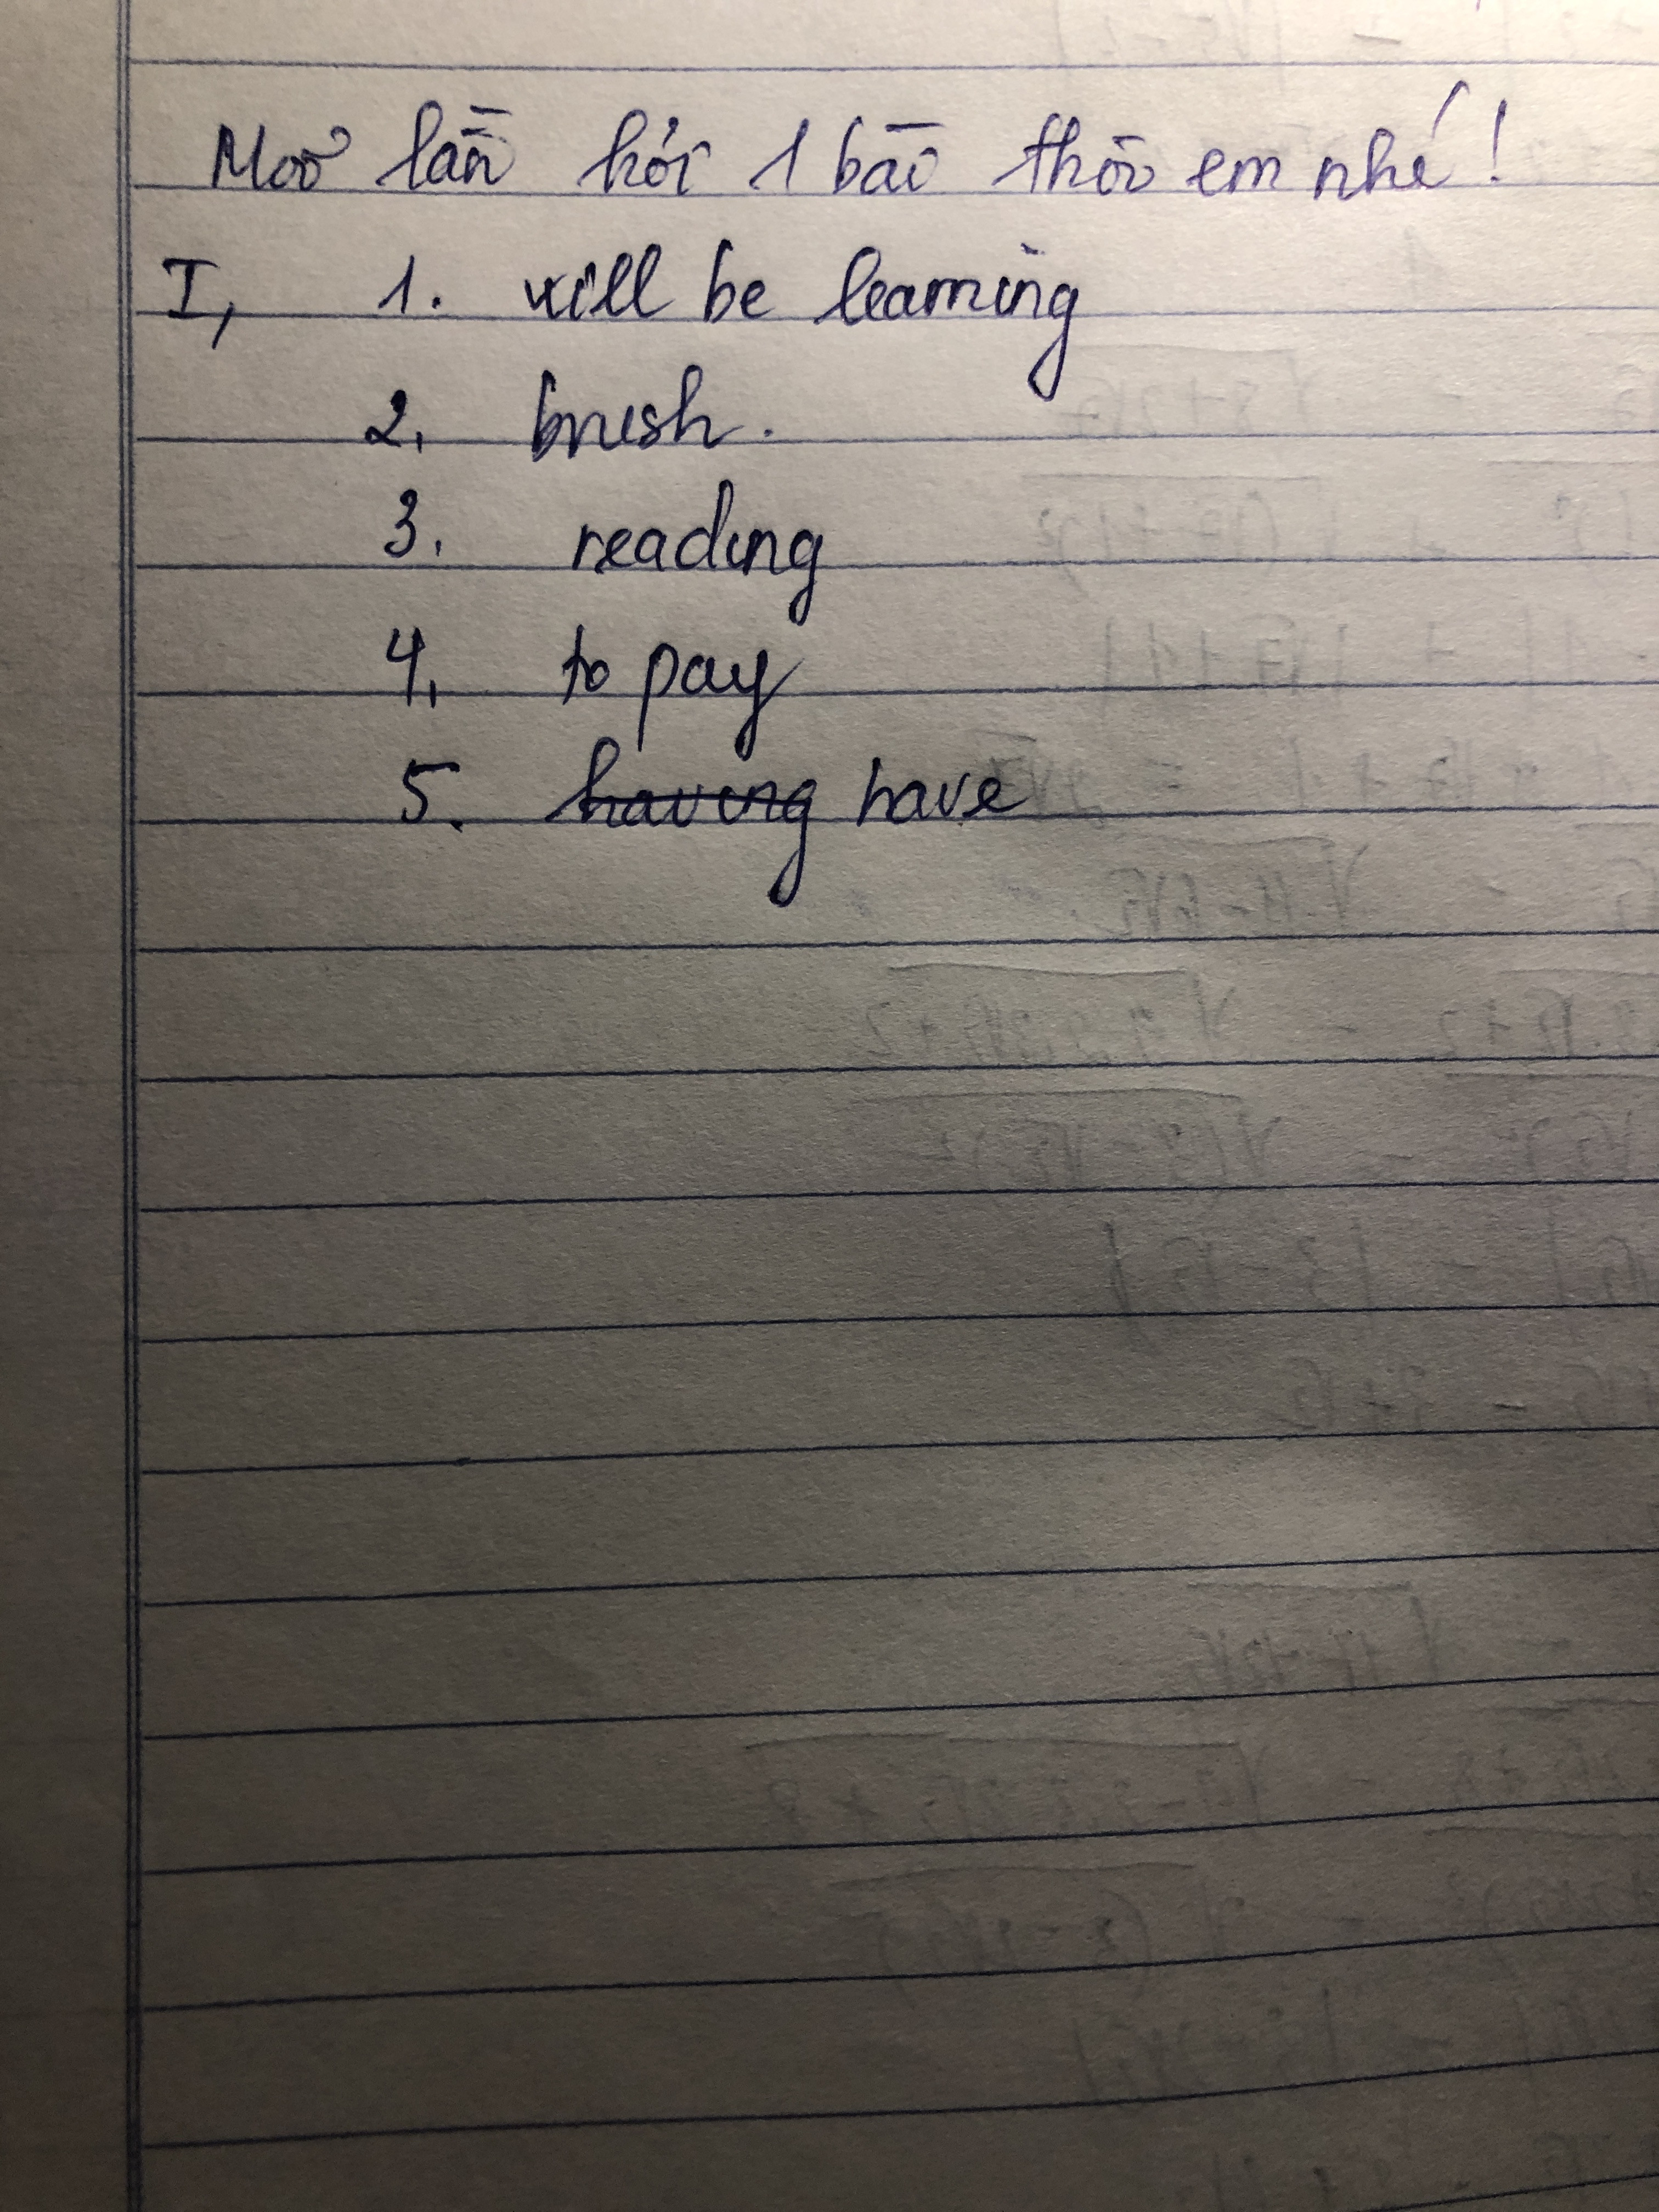 Mỗi lần hỏi 1 bài thôi em nhé!
I, 1. will be learning
2. brush.
3. reading
4. to pay
5. having have